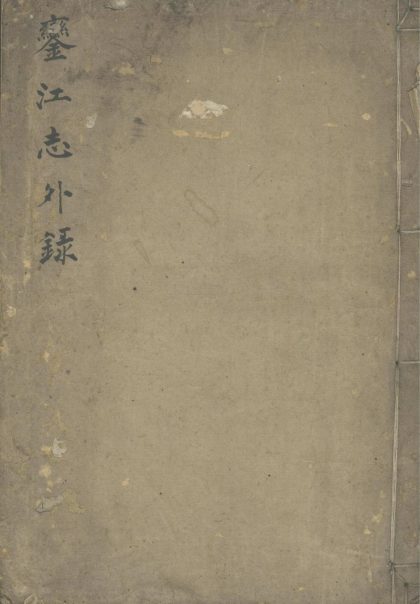 鑾江志外錄